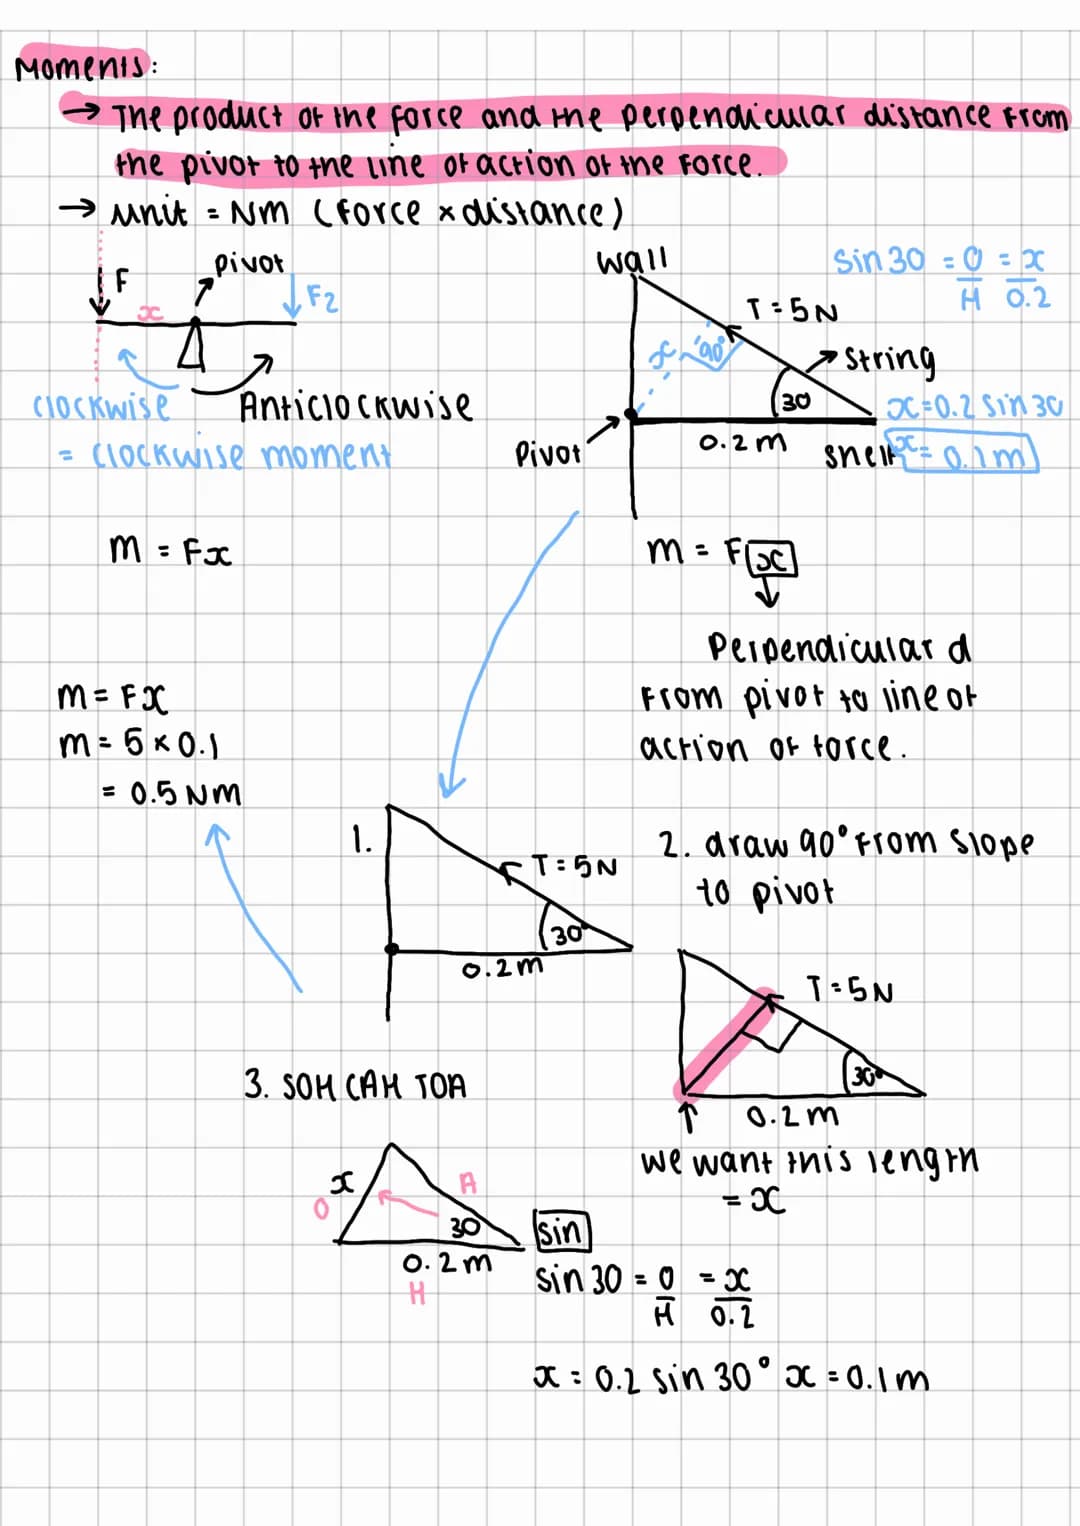 Moments:
→ The product of the force and the perpendicular distance from
the pivot to the line of action of the force.
→ unit = Nm (force × distance)
F
x
pivot
F2
clockwise
Anticlockwise
= clockwise moment
m = Fx
wall
T = 5N
sin 30 = O/H = x/0.2
x
90°
String
30
x = 0.2 sin 30
Pivot
0.2m
shelf
x = 0.1m
m = Fx
Perpendicular d
from pivot to line of
action of force.
m = Fx
m = 5 × 0.1
= 0.5 Nm
1.
T = 5N
30°
0.2m
2. draw 90° from slope
to pivot
T = 5N
30°
0.2m
we want this length
= x
3. SOH CAH TOA
x
O
A
30
0.2m
H
sin
sin 30 = O/H = x/0.2
x = 0.2 sin 30° x = 0.1m